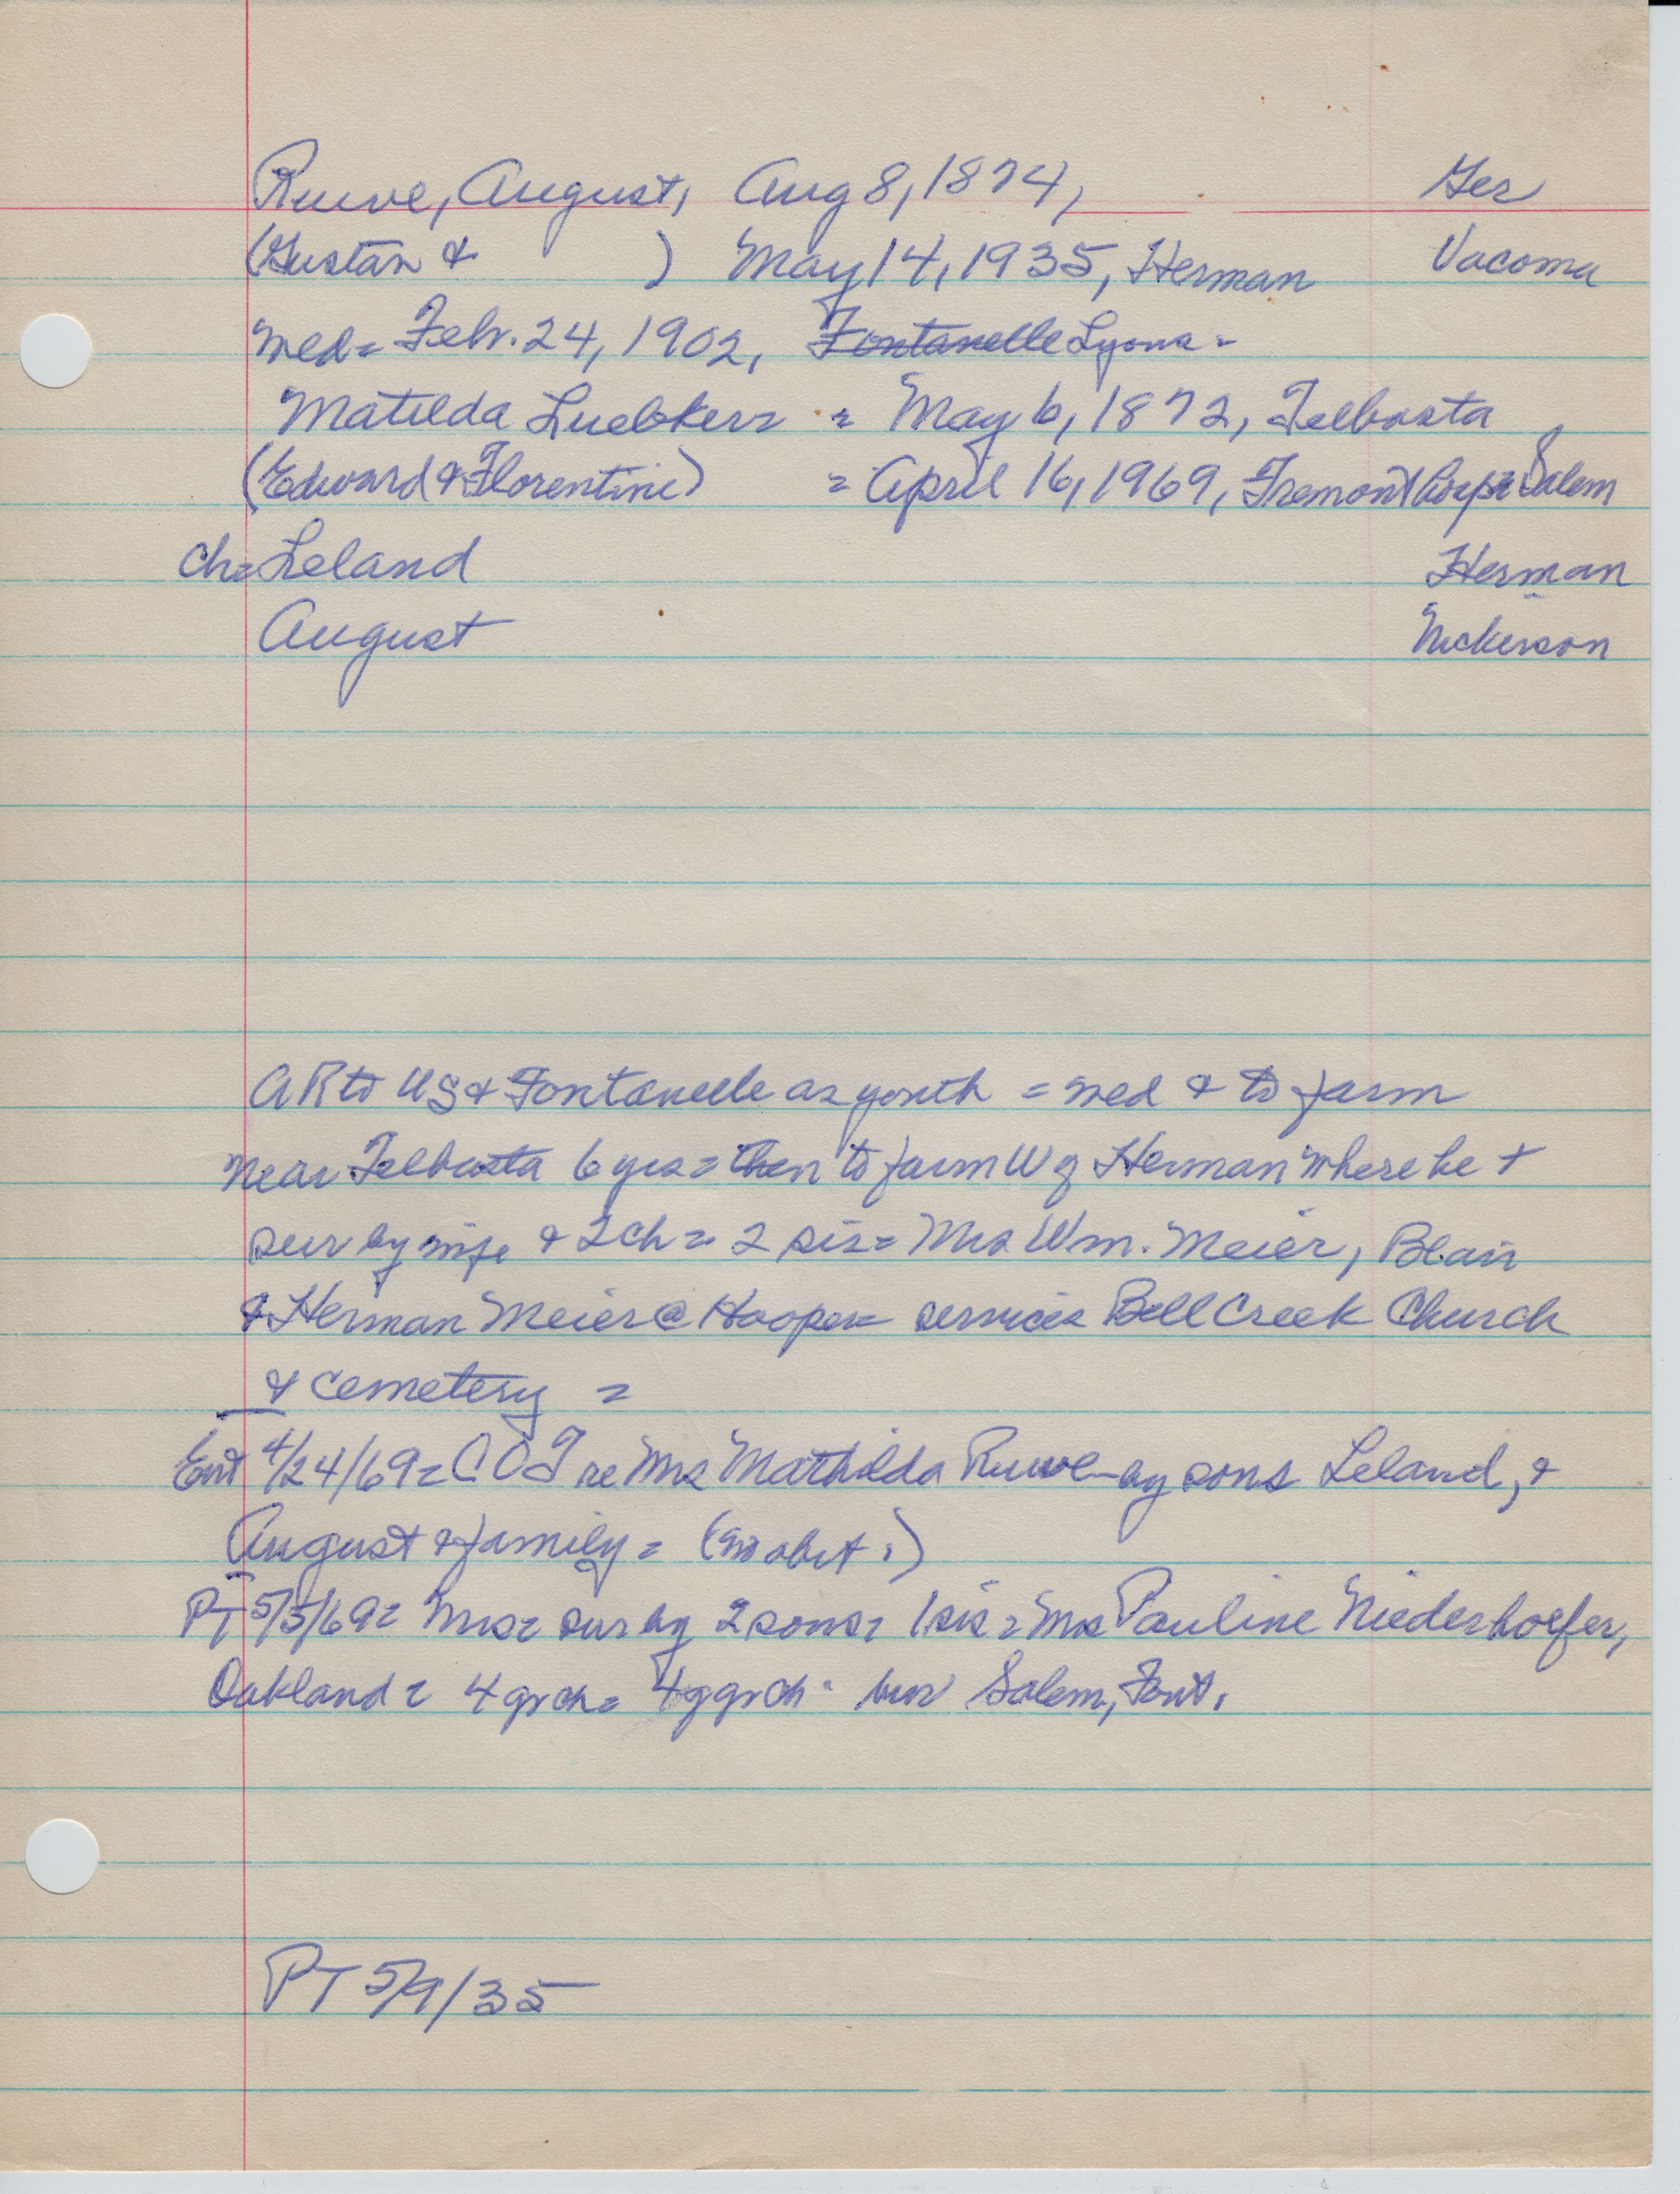 Ruwe, August, Aug 8, 1874, Ger
(Gustav & ) May 14, 1935, Herman Vacoma
med = Febr. 24, 1902, Fontanelle Lyons =
Matilda Luebker = = May 6, 1872, Telbasta
(Edward & Florentine) = April 16, 1969, Fremont hosp = Salem
ch = Leland Herman
August Nickerson
AR to US & Fontanelle as youth = med & to farm
near Telbasta 6 yrs = then to farm W of Herman where he +
sur by wife & 2 ch = 2 sis = Mrs Wm. Meier, Blair
& Herman Meier @ Hooper = services Bell Creek Church
& cemetery =
Ent 4/24/69 = C O T re Mrs Mathilda Ruwe - by sons Leland, &
August & family = (no obit.)
PT 5/5/69 = Mrs = sur by 2 sons = 1 sis = Mrs Pauline Niederhoefer,
Oakland = 4 grch = 4 ggrch - bur Salem, Font.
PT 5/9/35